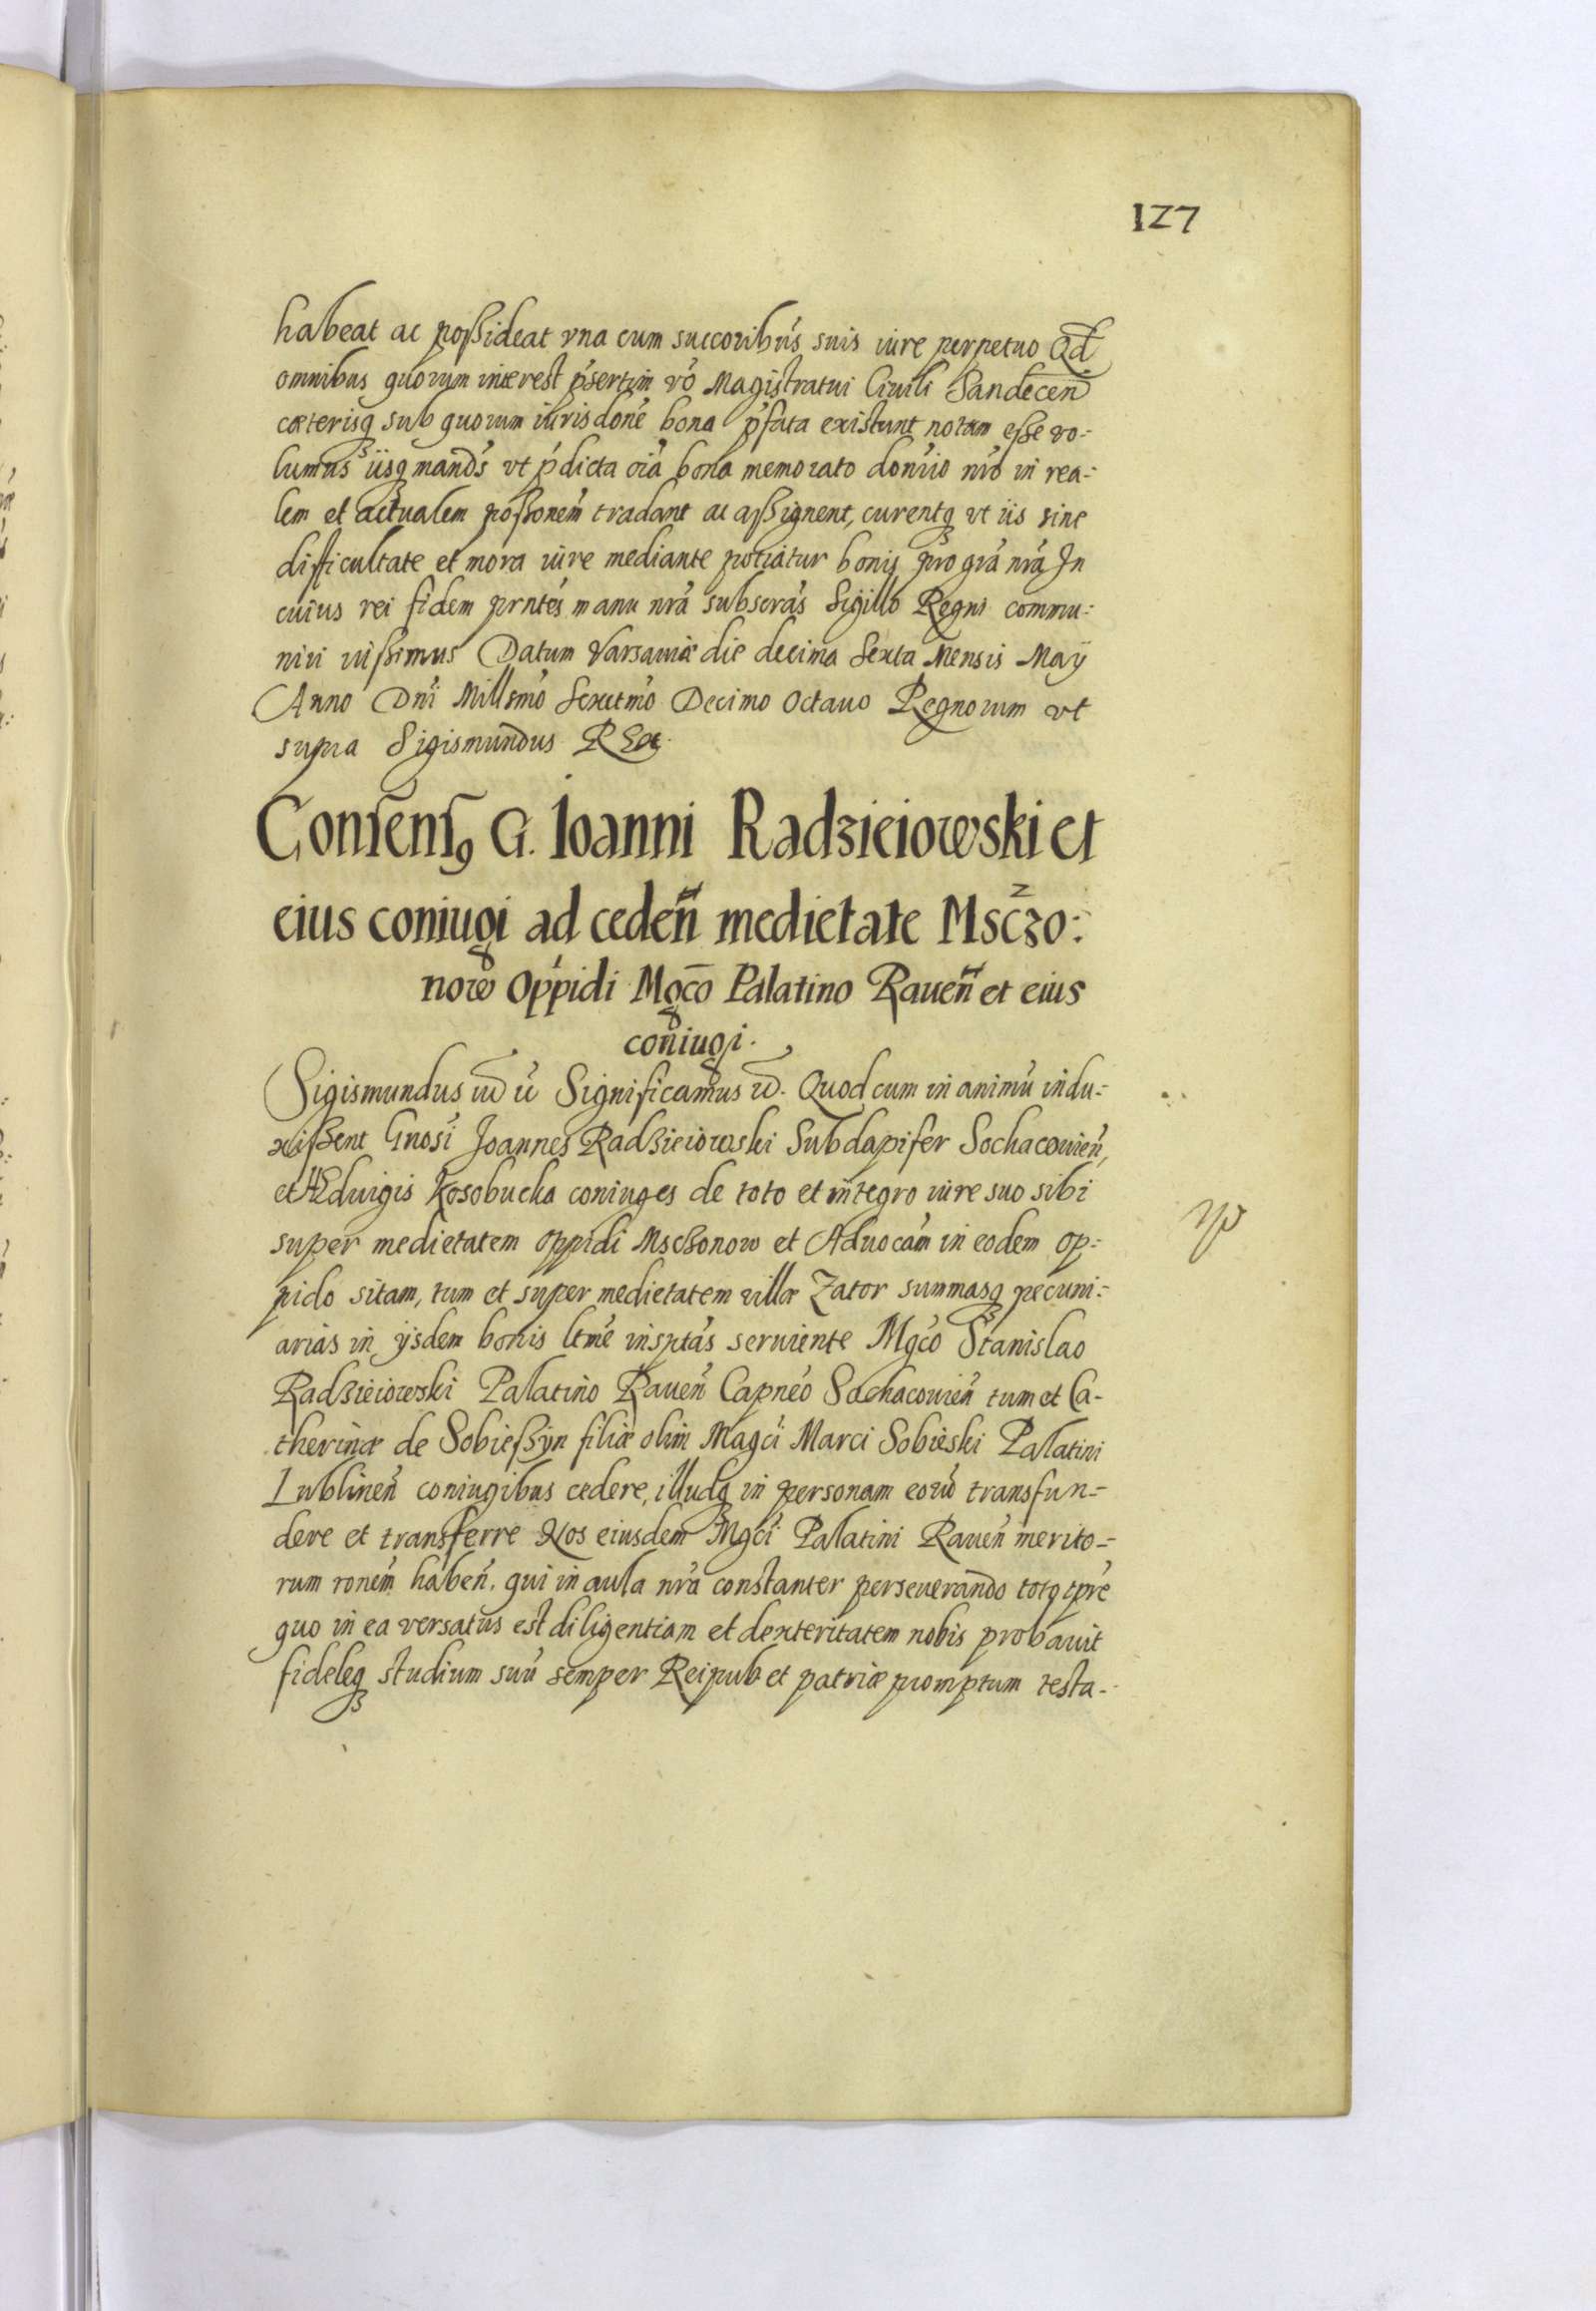 127
habeat ac possideat vna cum succoribus suis iure perpetuo Qd
omnibus quorum interest pʼsertim vo Magistratui Ciuili Sandecen
cæterisq sub quorum iurisdone bona pʼfata existunt notum esse vo-
lumus iisq mands vt pʼdicta oia bona memorato donrio nro in rea-
lem et actualem possonem tradant ac assignent, curentq vt iis sine
difficultate et mora iure mediante potiatur bonis pro gra nra In
cuius rei fidem prntes manu nra subscras Sigillo Regni commu-
niri iussimus Datum Varsauiæ die decima Sexta Mensis Maÿ
Anno Dni Millsmo Sexctmo Decimo Octauo Regnorum vt
supra Sigismundus Rex.
Consens9 G. Ioanni Radzieiowski et
eius coniugi ad ceden medietate Msczo:
now Oppidi Mgco Palatino Rauen et eius
coniugi.
Sigismundus Significamus Quod cum in animu indu-
xissent Gnosi Joannes Radzieiowski Subdapifer Sochacouien,
et HEduigis Kosobucka coniuges de toto et integro iure suo sibi
super medietatem oppidi Msczonow et Aduocam in eodem op-
pido sitam, tum et super medietatem villæ Zator summasq pecuni-
arias in ijsdem bonis ltme insptas seruiente Mgco Stanislao
Radzieiowski Palatino Rauen Capneo Sochacouien tum et Ca-
therinæ de Sobiessyn filiæ olim Magci Marci Sobieski Palatini
Lublinen coniugibus cedere, illudq in personam eoru transfun-
dere et transferre Nos eiusdem Mgci Palatini Rauen merito-
rum ronem haben. qui in aula nra constanter perseuerando totq tpre
quo in ea versatus est diligentiam et dexteritatem nobis probauit
fideleq studium suu semper Reipub et patriæ promptum testa-